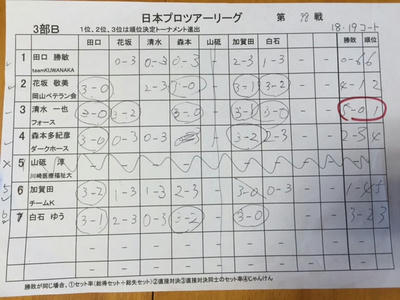 日本プロツアーリーグ 第 戦
3部B 1位、2位、3位は順位決定トーナメント進出 18・19コート
田口 花坂 清水 森本 山砥 加賀田 白石 勝敗 順位
1 田口 勝敏 0-3 0-3 2-3 1-3 0-6 6
teamKUWANAKA
2 花坂 敬美 3-0 2-3 3-0 3-1 3-2 4-1 2
岡山ベテラン会
3 清水 一也 3-0 3-2 3-0 3-1 3-0 5-0 1
フォース
4 森本多紀彦 3-0 3-2 2-3 4
ダークホース
5 山砥 淳
川崎医療福祉大
6 加賀田 3-2 1-3 1-3 2-3 0-3 1-4 5
チームK
7 白石 ゆう 3-1 2-3 0-3 3-2 3-0 3-2 3
勝敗が同じ場合、①セット率(総得セット÷総失セット)②直接対決③直接対決同士のセット率④じゃんけん